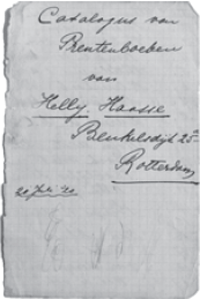 Catalogus van
Prentenboeken
van
Hella Haasse
Beukelsdijk 25a
Rotterdam
20 Juli '20